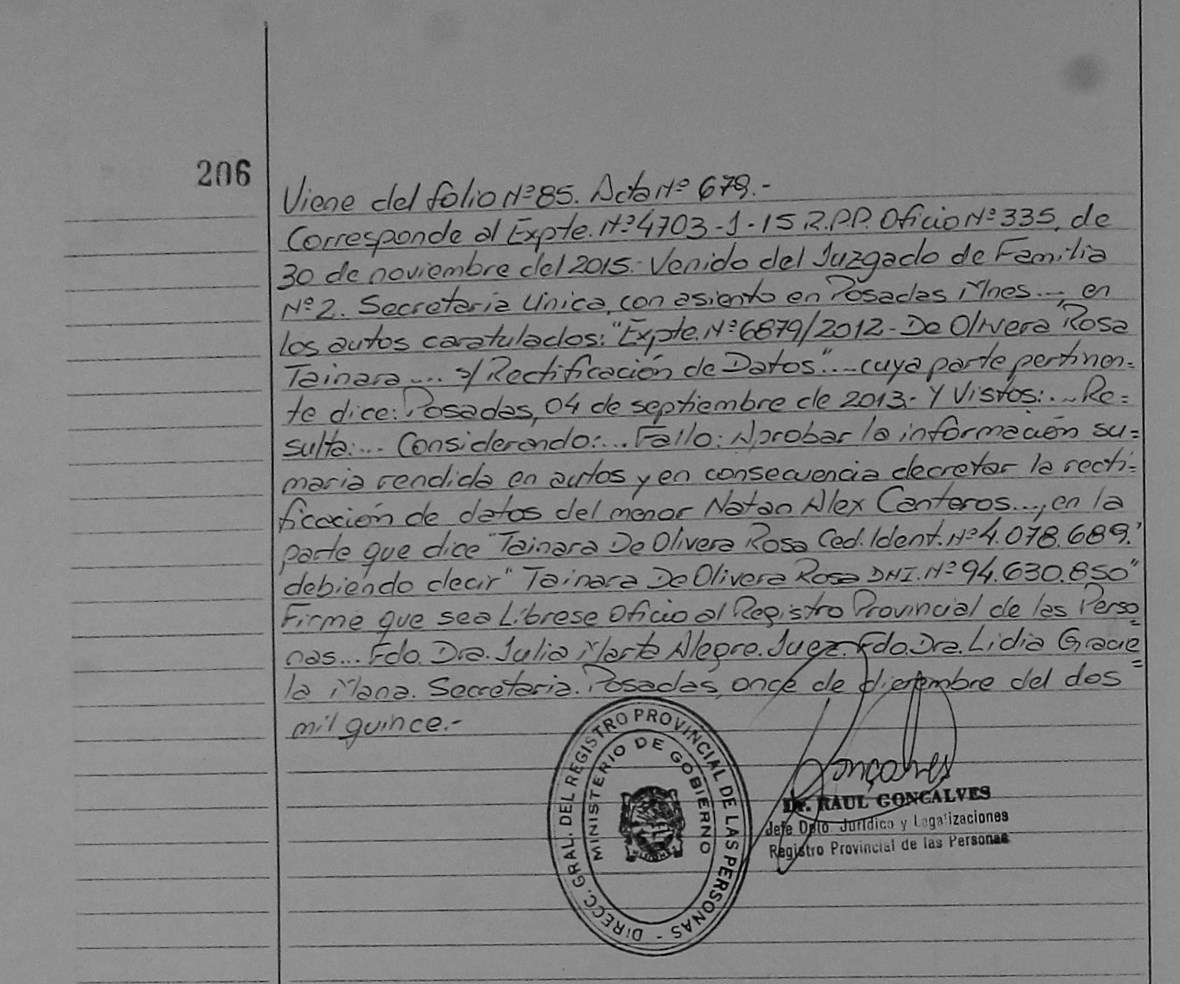 206
Viene del folio Nº85. Acta Nº 679.-
Corresponde al Expte. Nº4703-1-15 R.P.P. Oficio Nº335, de
30 de noviembre del 2015.- Venido del Juzgado de Familia
Nº2. Secretaria Unica, con asiento en Posadas Mnes..., en
los autos caratulados: "Expte. Nº6879/2012- De Olivera Rosa
Tainara.... s/ Rectificación de Datos"... cuya parte pertinen-
te dice: Posadas, 04 de septiembre de 2013.- Y Vistos:... Re=
sulta:... Considerando:... Fallo: Aprobar la información su=
maria rendida en autos y en consecuencia decretar la recti-
ficación de datos del menor Natan Alex Canteros..., en la
parte que dice "Tainara De Olivera Rosa Ced. Ident. Nº4.078.689."
debiendo decir "Tainara De Olivera Rosa DNI. Nº94.630.850"
Firme que sea Librese Oficio al Registro Provincial de las Perso
nas... Fdo. Dra. Julia Marta Alegre. Juez. Fdo. Dra. Lidia Gracie
la Mana. Secretaria. Posadas, once de diciembre del dos=
mil quince.-
DIRECC. GRAL. DEL REGISTRO PROVINCIAL DE LAS PERSONAS -
MINISTERIO DE GOBIERNO
Gonçalves
Dr. RAUL GONCALVES
Jefe Dpto. Jurídico y Legalizaciones
Registro Provincial de las Personas